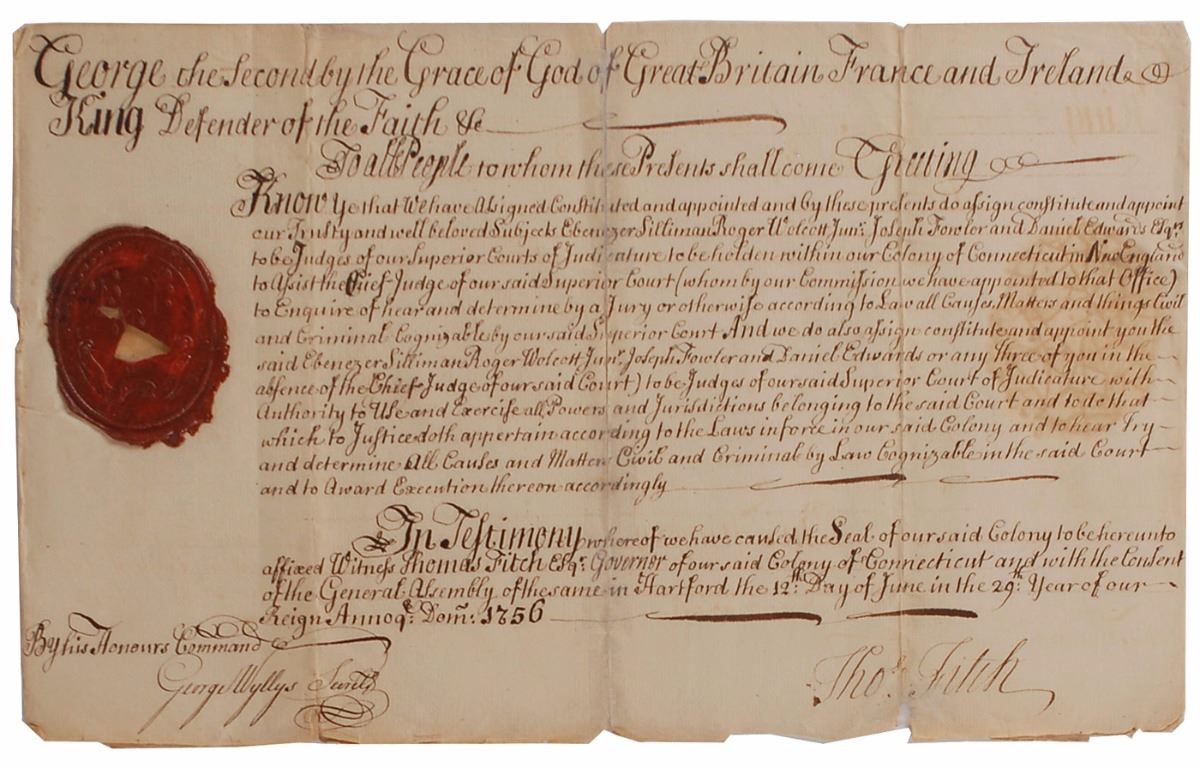 George the Second by the Grace of God of Great Britain France and Ireland
King Defender of the Faith &c
To all People to whom these Presents shall come Greeting
Know Ye that We have Assigned Constituted and appointed and by these presents do assign constitute and appoint
our Trusty and well beloved Subjects Ebenezer Silliman Roger Wolcott Junr. Joseph Fowler and Daniel Edwards Esqrs.
to be Judges of our Superior Courts of Judicature to be holden within our Colony of Connecticut in New England
to Assist the Chief Judge of our said Superior Court (whom by our Commission we have appointed to that Office)
to Enquire of hear and determine by a Jury or otherwise according to Law all Causes, Matters and things Civil
and Criminal Cognizable by our said Superior Court And we do also assign constitute and appoint you the
said Ebenezer Silliman Roger Wolcott Junr. Joseph Fowler and Daniel Edwards or any three of you in the
absence of the Chief Judge of our said Court) to be Judges of our said Superior Court of Judicature with
Authority to Use and Exercise all Powers and Jurisdictions belonging to the said Court and to do that
which to Justice doth appertain according to the Laws in force in our said Colony and to hear Try
and determine All Causes and Matters Civil and Criminal by Law Cognizable in the said Court
and to Award Execution thereon accordingly
In Testimony whereof we have caused the Seal of our said Colony to be hereunto
affixed Witness Thomas Fitch Esqr. Governor of our said Colony of Connecticut and with the Consent
of the General Assembly of the same in Hartford the 12th. Day of June in the 29th. Year of our
Reign Annoqe. Domi. 1756
By his Honours Command
George Wyllys Secretry
Thos. Fitch